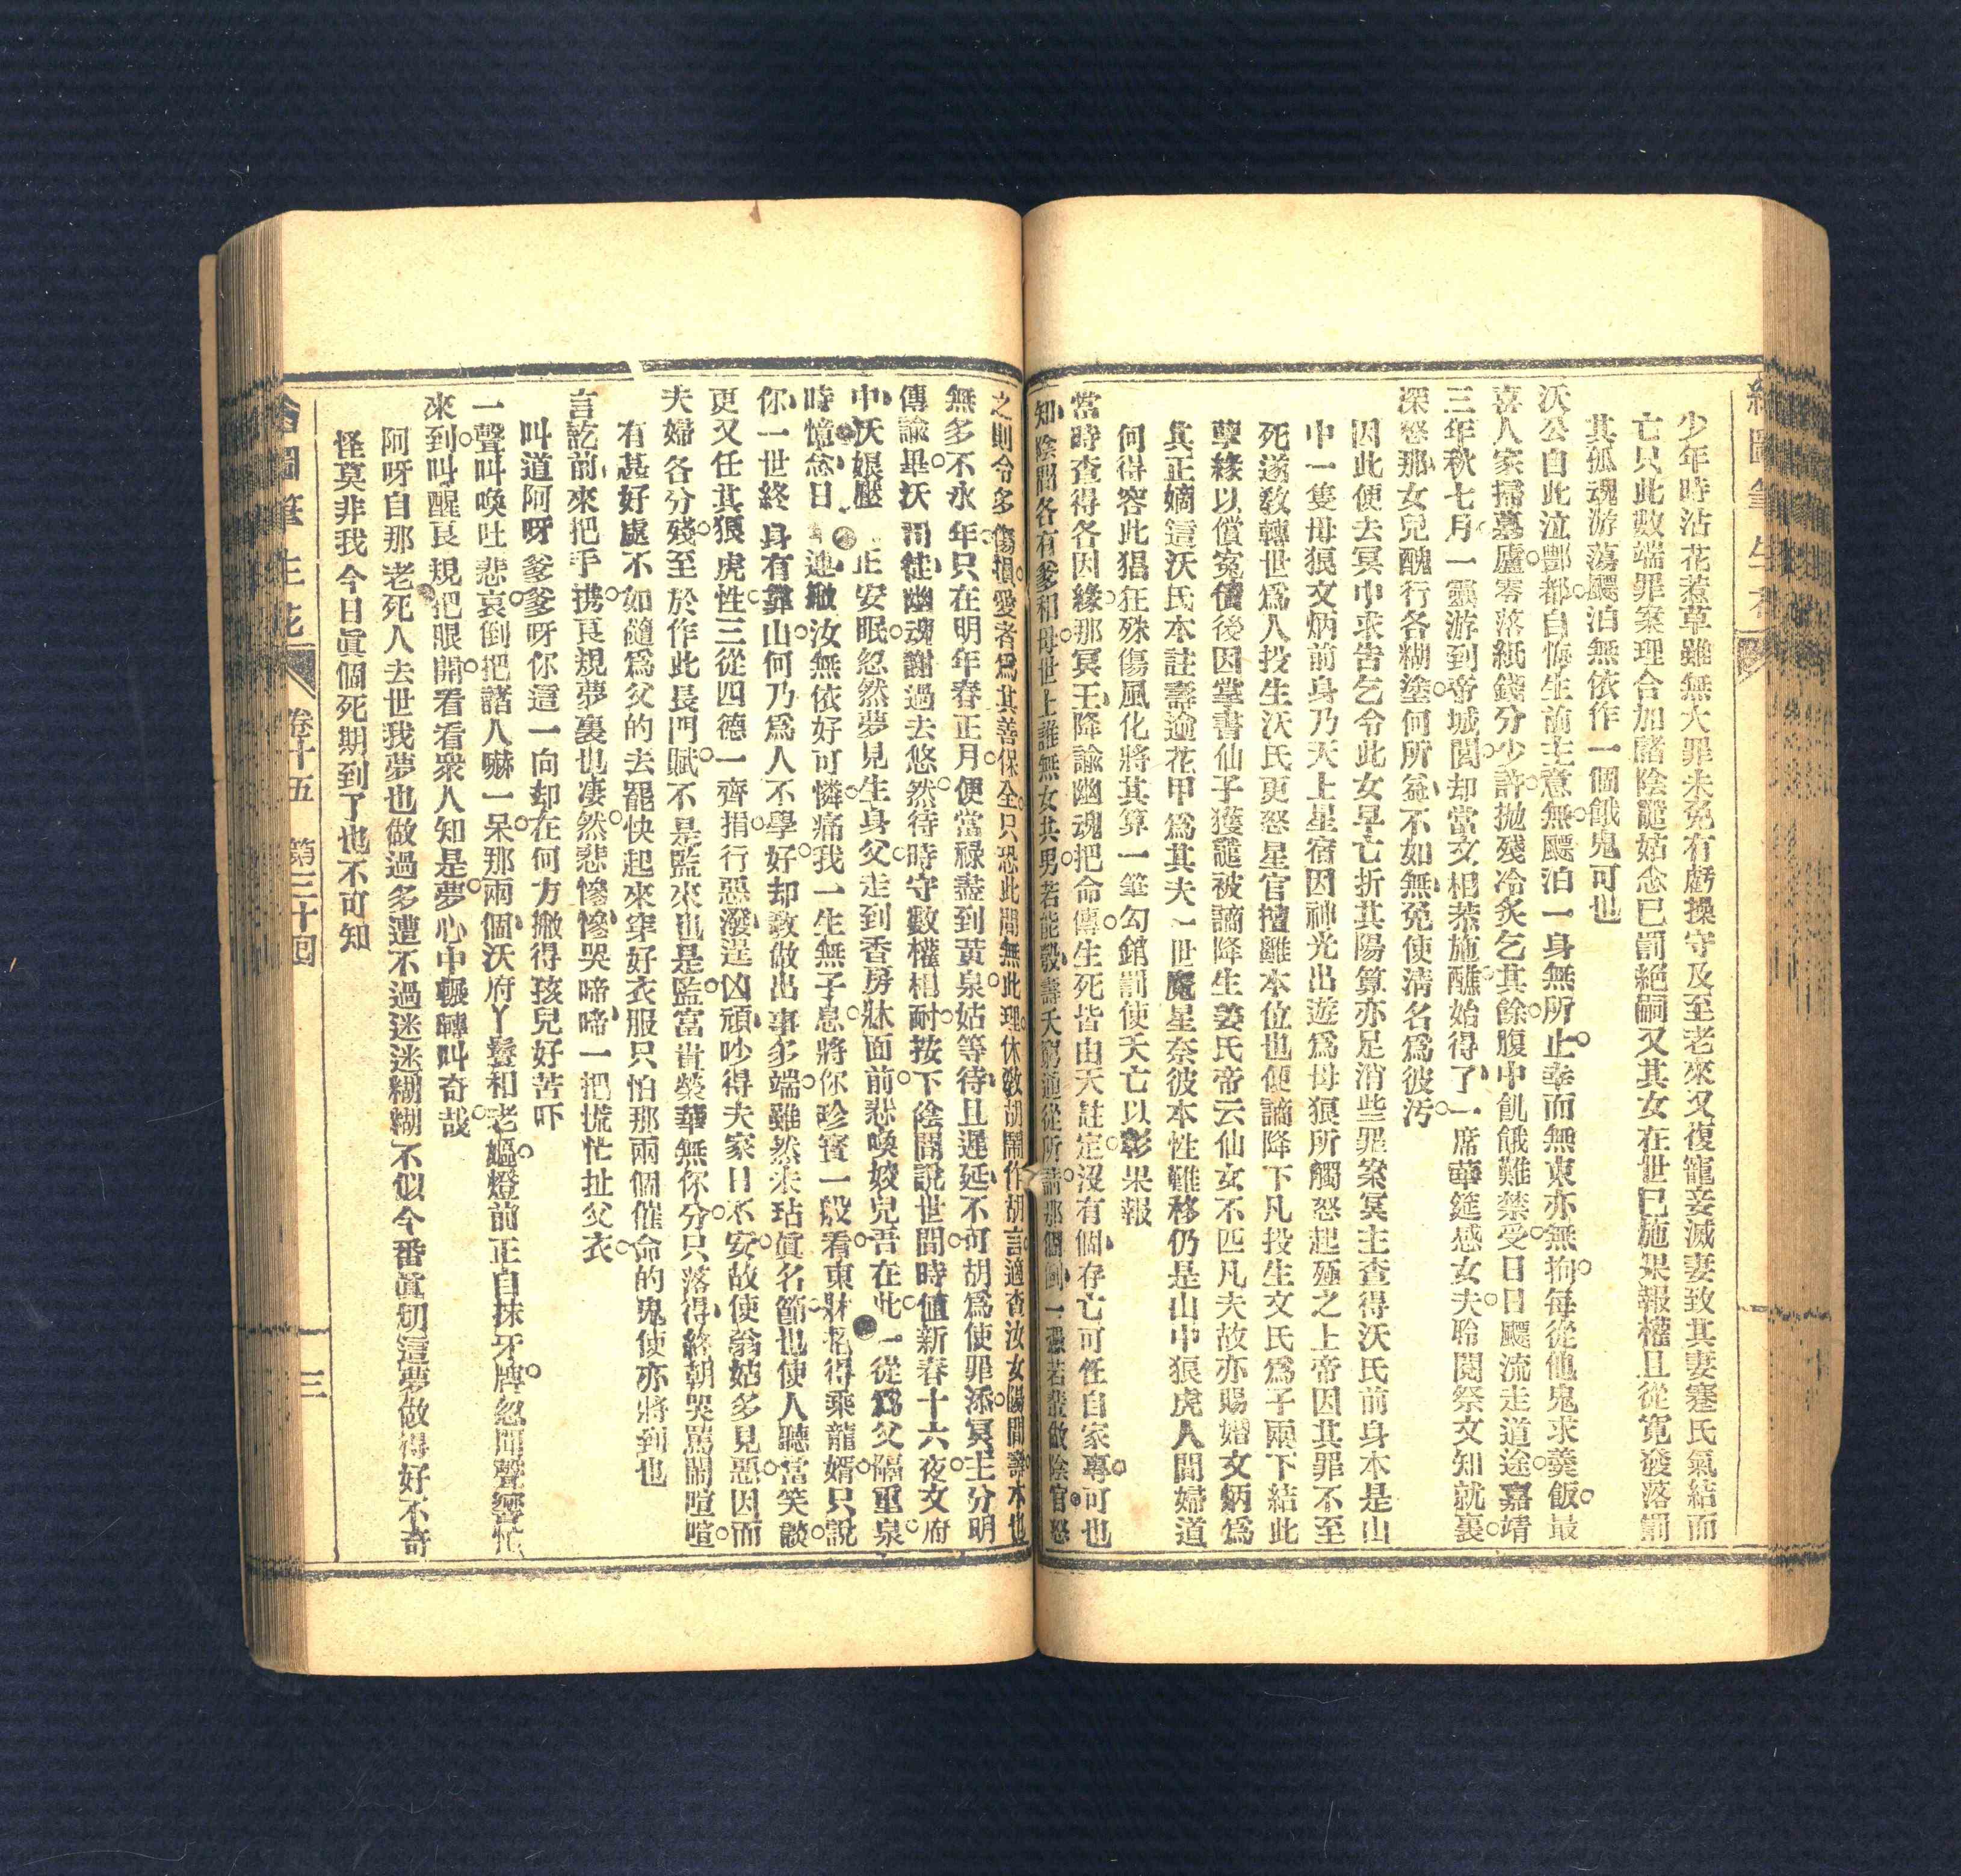 少年時沾花惹草雖無大罪未免有虧操守及至老來又復寵妾滅妻致其妻蹇氏氣結而
亡只此數端罪案理合加諸陰譴姑念已罰絕嗣又其女在世已施果報權且從寬發落罰
其孤魂游蕩飄泊無依作一個餓鬼可也
沃公自此泣酆都自悔生前主意無飄泊一身無所止幸而無束亦無拘每從他鬼求羹飯最
喜人家掃墓廬零落紙錢分少許拋殘冷炙乞其餘腹中飢餓難禁受日日飄流走道途嘉靖
三年秋七月一靈游到帝城閭却當文相恭施醮始得了一席華筵感女夫聆閱祭文知就裏
深怒那女兒醜行各糊塗何所益不如無免使清名爲彼汚
因此便去冥中求告乞令此女早亡折其陽算亦足消些罪案冥主查得沃氏前身本是山
中一隻母狼文炳前身乃天上星宿因神光出遊爲母狼所觸怒起殛之上帝因其罪不至
死遂敎轉世爲人投生沃氏更怒星官擅離本位也便謫降下凡投生文氏爲子兩下結此
孽緣以償寃債後因掌書仙子獲譴被謫降生姜氏帝云仙女不匹凡夫故亦賜婚文炳爲
其正嫡這沃氏本註壽逾花甲爲其夫一世魔星奈彼本性難移仍是山中狼虎人間婦道
何得容此猖狂殊傷風化將其算一筆勾銷罰使夭亡以彰果報
當時查得各因緣那冥王降諭幽魂把命傳生死皆由天註定沒有個存亡可任自家專可也
知陰間各有爹和母世上誰無女共男若能彀壽夭窮通從所請那個個一憑若輩做陰官怒
之則令多傷損愛者爲其善保全只恐此間無此理休敎胡鬧作胡言適查汝女陽間壽本也
無多不永年只在明年春正月便當祿盡到黃泉姑等待且遲延不可胡爲使罪添冥主分明
傳諭畢沃司徒幽魂謝過去悠然待時守數權相耐按下陰間說世間時値新春十六夜文府
中沃娘壓正安眠忽然夢見生身父走到香房牀面前悲喚姣兒吾在此一從爲父隔重泉
時憶念日連緜汝無依好可憐痛我一生無子息將你珍寶一般看東牀招得乘龍婿只說
你一世終身有靠山何乃爲人不學好却敎做出事多端雖然未玷眞名節也使人聽當笑談
更又任其狼虎性三從四德一齊捐行惡潑逞凶頑吵得夫家日不安故使翁姑多見惡因而
夫婦各分殘至於作此長門賦不是監來也是監富貴榮華無你分只落得終朝哭罵鬧喧喧
有甚好處不如隨爲父的去罷快起來穿好衣服只怕那兩個催命的鬼使亦將到也
言訖前來把手攜艮規夢裏也凄然悲慘慘哭啼啼一把慌忙扯父衣
叫道阿呀爹爹呀你這一向却在何方撇得孩兒好苦吓
一聲叫喚吐悲哀倒把諸人嚇一呆那兩個沃府丫鬟和老嫗燈前正自抹牙牌忽聞聲響忙
來到叫醒艮規把眼開看看衆人知是夢心中輾轉叫奇哉
阿呀自那老死人去世我夢也做過多遭不過迷迷糊糊不似今番眞切這夢做得好不奇
怪莫非我今日眞個死期到了也不可知
卷十五　第三十回
三